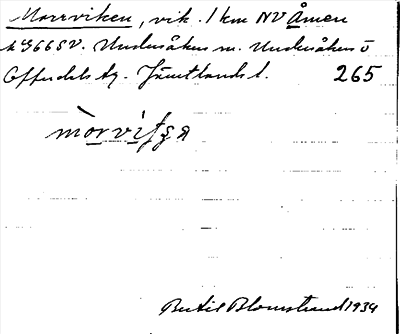 Morrviken, vik. 1 km NV Åmen
k 966 SV. Undersåkers sn. Undersåkers o
Offerdals tg. Jämtlands l. 265
Bertil Blomstrand 1934